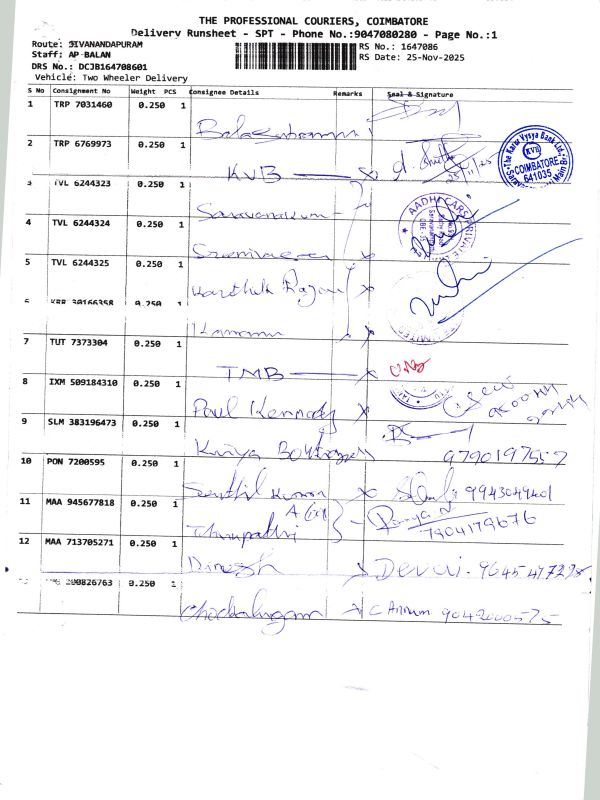 THE PROFESSIONAL COURIERS, COIMBATORE
Delivery Runsheet - SPT - Phone No.:9047080280 - Page No.:1
Route: SIVANANDAPURAM
RS No.: 1647086
Staff: AP-BALAN
RS Date: 25-Nov-2025
DRS No.: DCJB164708601
Vehicle: Two Wheeler Delivery
S No Consignment No Weight PCS Consignee Details Remarks Seal & Signature
1 TRP 7031460 0.250 1
2 TRP 6769973 0.250 1
KVB
The Karur Vysya Bank Ltd.
KVB
COIMBATORE
641035
3 TVL 6244323 0.250 1
Saravanakumar
4 TVL 6244324 0.250 1
Srinivasan
5 TVL 6244325 0.250 1
Karthik Rajan
6 KRR 30166358 0.250 1
Kannan
7 TUT 7373304 0.250 1
TMB
8 IXM 509184310 0.250 1
Paul Kennady
9 SLM 383196473 0.250 1
Kriya 9790197557
10 PON 7200595 0.250 1
Senthil Kumar 9943049401
11 MAA 945677818 0.250 1
Thirupathi 7904179676
12 MAA 713705271 0.250 1
Dinesh Devai.
200826763 0.250 1
Chockalingam 9042000575